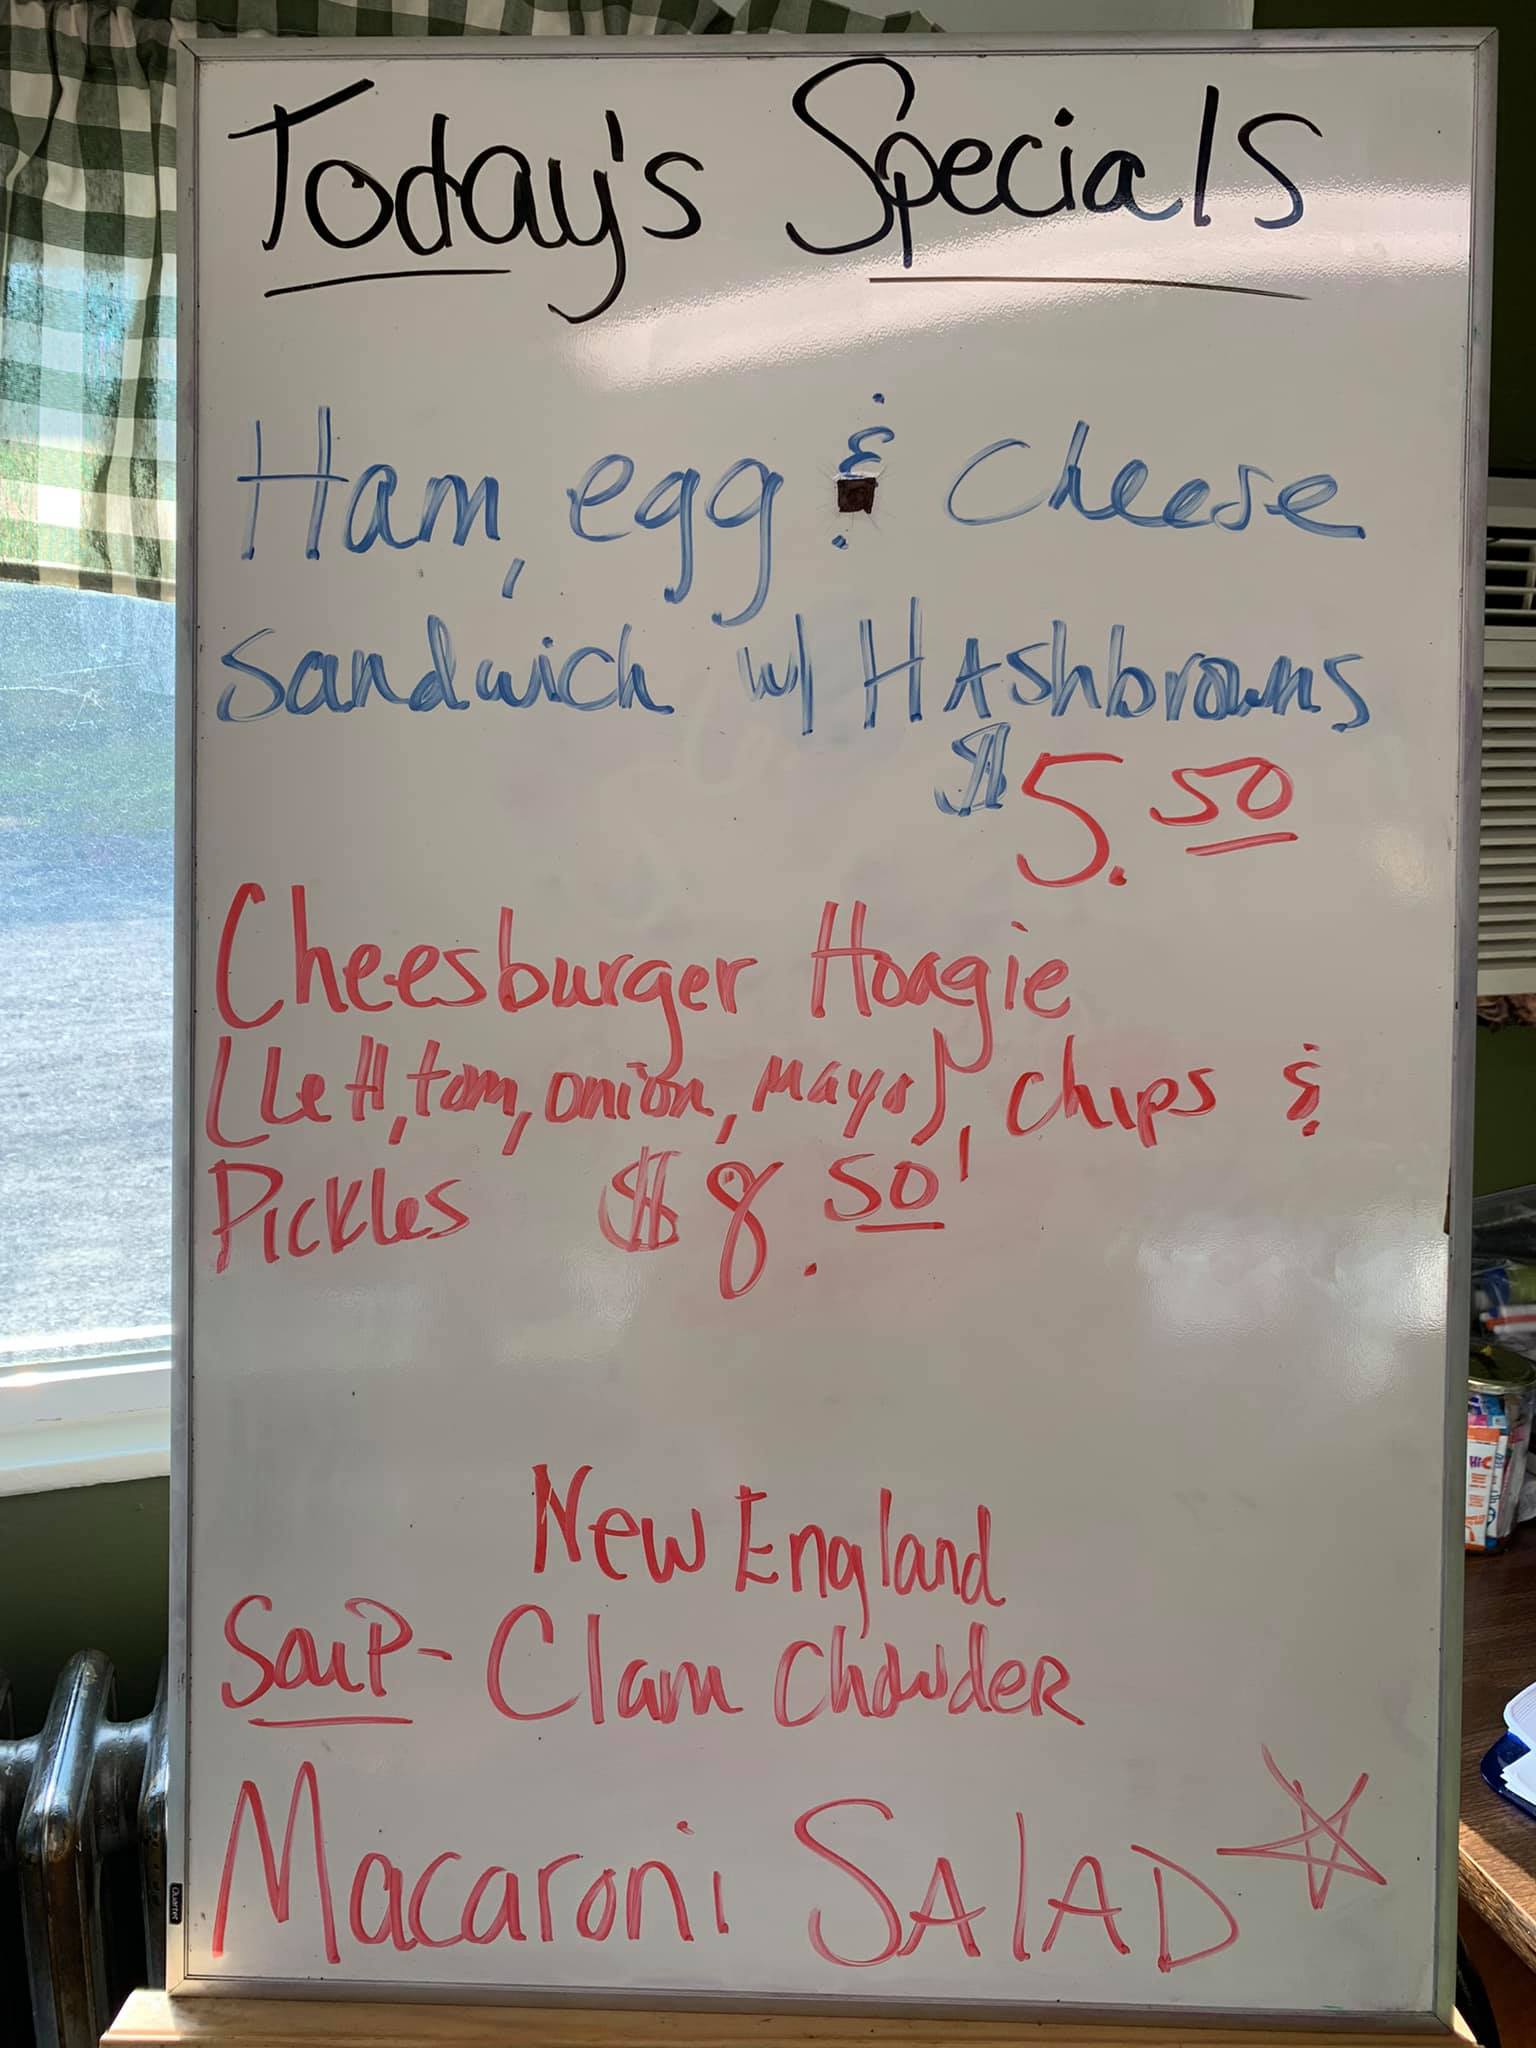 Today's Specials
Ham, egg & Cheese
Sandwich w/ HAshbrowns
$5.50
Cheesburger Hoagie
(Lett, tom, onion, mayo), chips &
Pickles $8.50
New England
Soup- Clam Chowder
Macaroni SAlAD
Quartet
Hi-C